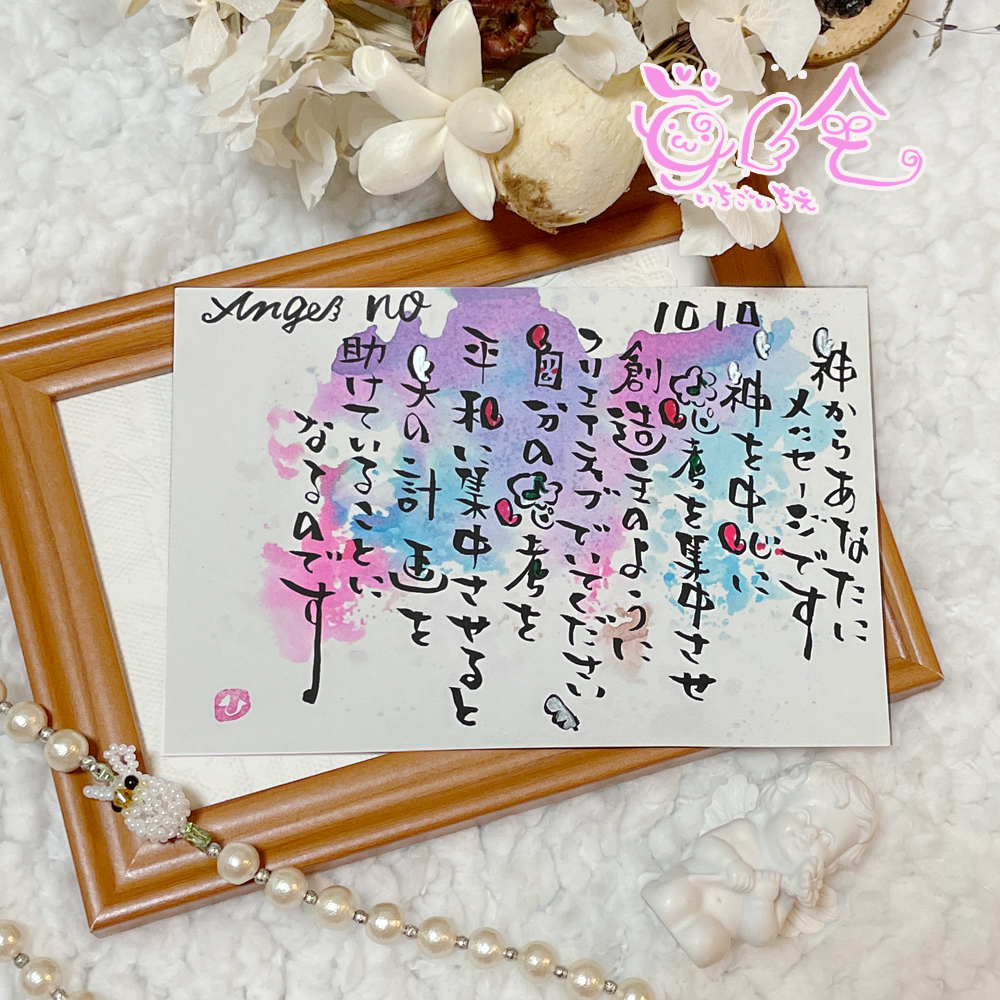 いちごいちえ
Angel no
1010
神からあなたに
メッセージです
神を中心に
思考を集中させ
創造主のように
クリエイティブでいてください
自分の思考を
平和に集中させると
天の計画を
助けていることに
なるのです